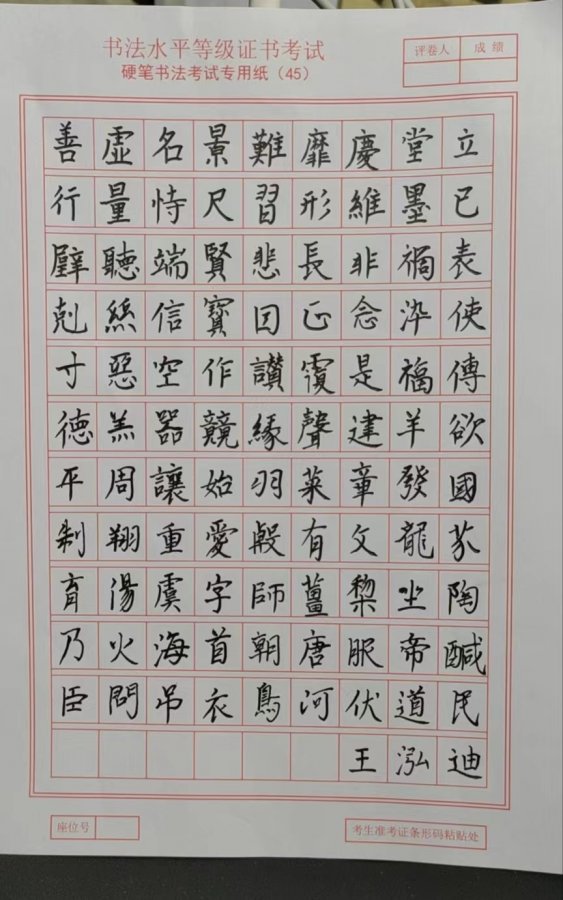 书法水平等级证书考试
硬笔书法考试专用纸（45）
评卷人 成绩
善虛名景難靡慶堂立
行量恃尺習形維墨已
璧聽端賢悲長非禍表
剋絲信寶因正念染使
寸惡空作讚覆是福傳
德羔器競緣聲建羊欲
平周讓始羽菜章發國
制翔重愛殷有文龍芥
育湯虞字師薑黎坐陶
乃火海首朝唐服帝鹹
臣問吊衣鳥河伏道民
王泓迪
座位号
考生准考证条形码粘贴处